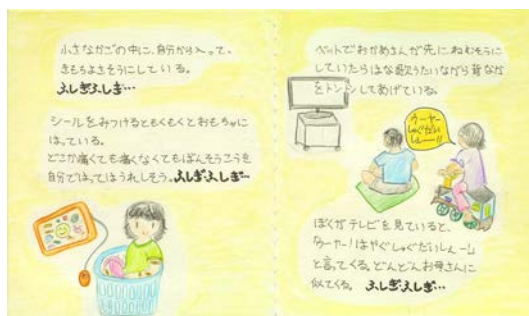 小さなかごの中に、自分から入って、
きもちよさそうにしている。
ふしぎふしぎ…
シールをみつけるともくもくとおもちゃに
はっている。
どこか痛くても痛くなくてもばんそうこうを
自分ではってはうれしそう。ふしぎ・ふしぎ…
ベットでおかあさんが先にねむそうに
していたらはな歌うたいながら背なか
をトントンしてあげている。
ウーヤー
しゅくだい
しぇー!!
ぼくがテレビを見ていると、
「ウーヤー!はやくしゅくだいしぇー」
と言ってくる。どんどんお母さんに
似てくる。ふしぎ・ふしぎ…